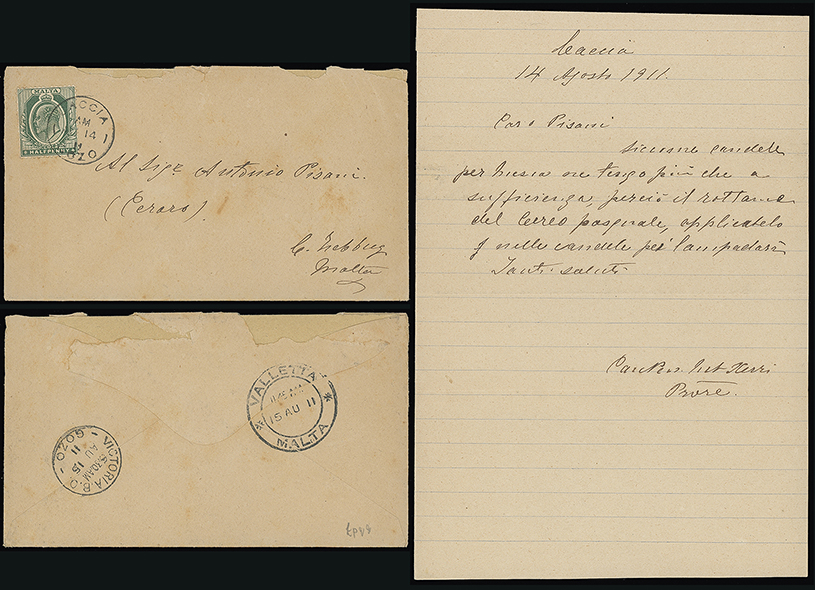 MALTA
HALFPENNY
ACCIA
AM
14
11
OZO
Al Sigr. Antonio Pisani.
(Ceraro).
C. Zebbug
Malta
VALLETTA
15 AU 11
MALTA
VICTORIA B.O
5.30AM
AU 15
11
GOZO
Caccia
14 Agosto 1911.
Caro Pisani
siccome candele
per messa ne tengo più che a
sufficienza perciò il rottame
del Cereo pasquale, applicatelo
nelle candele per lampadari
Tanti saluti
Can